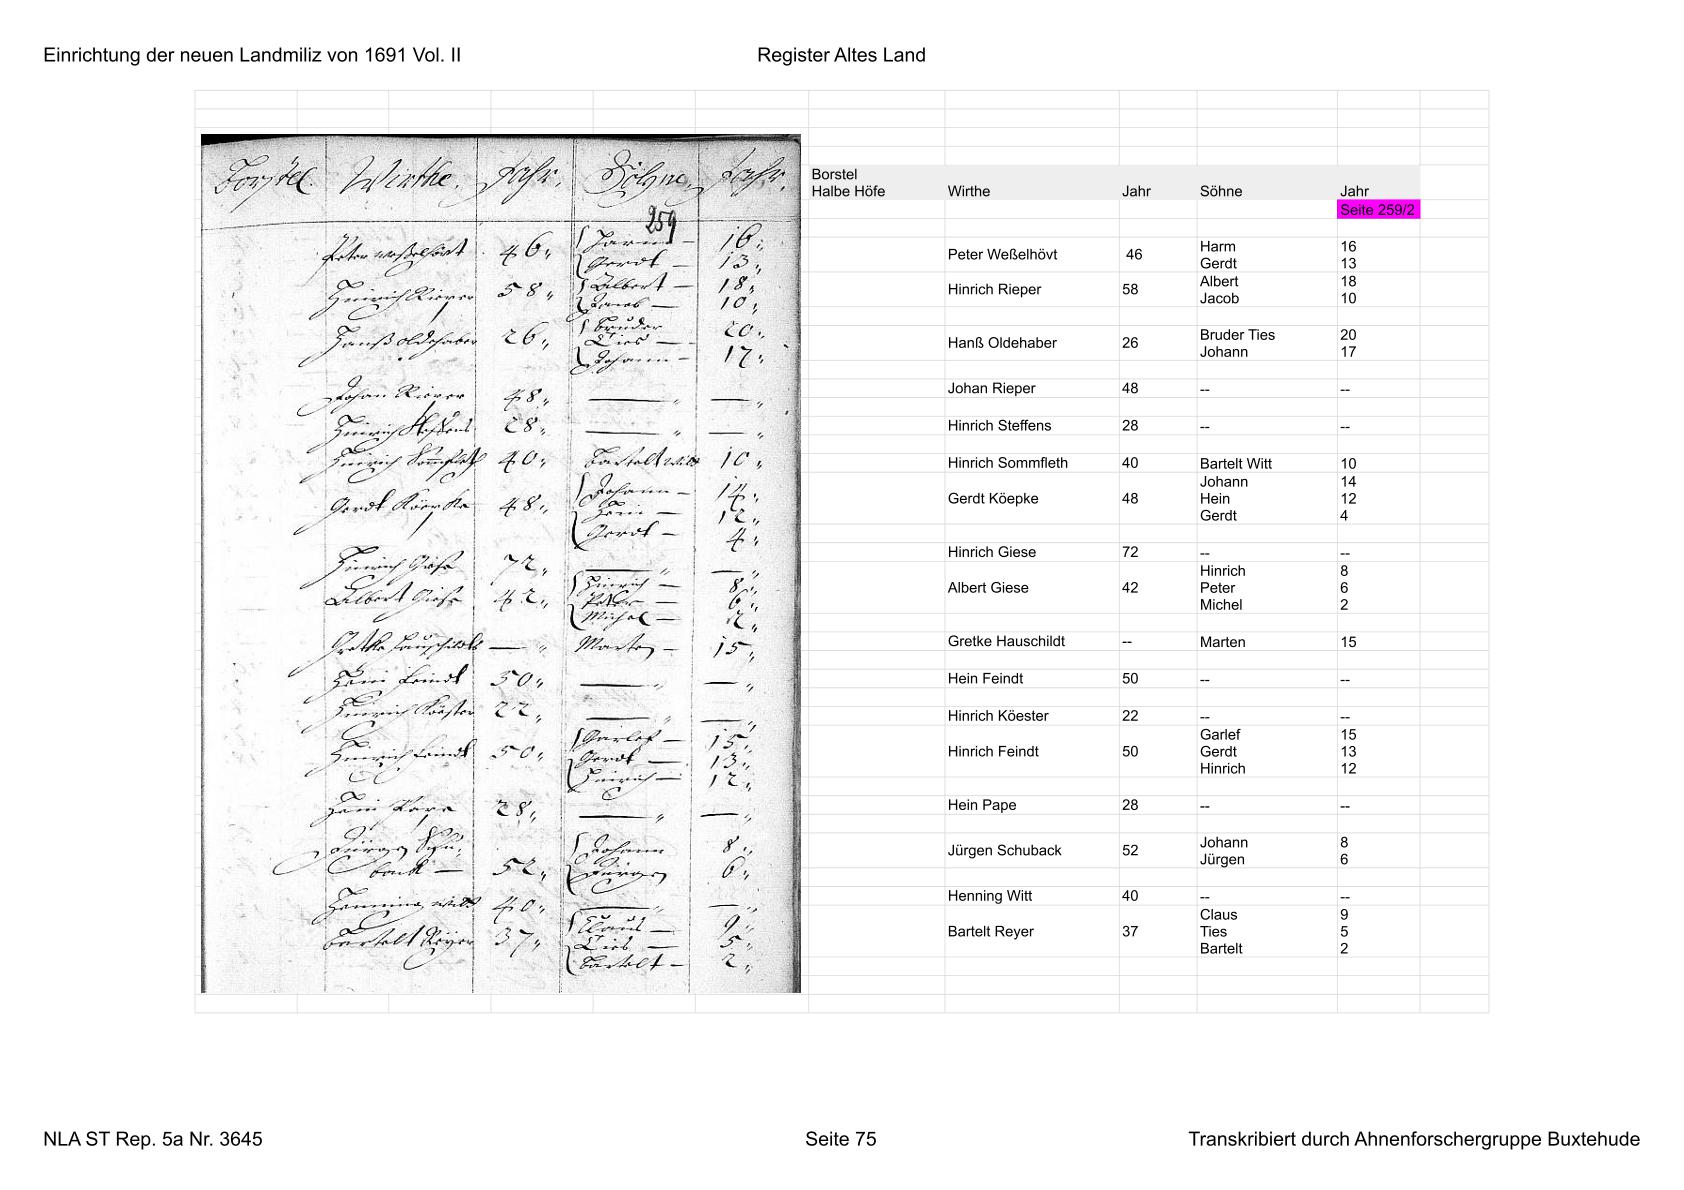 Einrichtung der neuen Landmiliz von 1691 Vol. II Register Altes Land
Borstel. Wirthe. Jahr. Söhne. Jahr.
259
Peter Weßelhövt 46 Harm 16
Gerdt 13
Hinrich Rieper 58 Albert 18
Jacob 10
Hanß Oldehaber 26 Bruder 20
Ties
Johann 17
Johan Rieper 48 — —
Hinrich Steffens 28 — —
Hinrich Sommfleth 40 Bartelt Witt 10
Gerdt Köepke 48 Johann 14
Hein 12
Gerdt 4
Hinrich Giese 72 — —
Albert Giese 42 Hinrich 8
Peter 6
Michel 2
Gretke Hauschildt — Marten 15
Hein Feindt 50 — —
Hinrich Köester 22 — —
Hinrich Feindt 50 Garlef 15
Gerdt 13
Hinrich 12
Hein Pape 28 — —
Jürgen Schu- Johann 8
back — 52 Jürgen 6
Henning Witt 40 — —
Bartelt Reyer 37 Claus 9
Ties 5
Bartelt 2
Borstel
Halbe Höfe Wirthe Jahr Söhne Jahr
Seite 259/2
Peter Weßelhövt 46 Harm 16
Gerdt 13
Hinrich Rieper 58 Albert 18
Jacob 10
Hanß Oldehaber 26 Bruder Ties 20
Johann 17
Johan Rieper 48 -- --
Hinrich Steffens 28 -- --
Hinrich Sommfleth 40 Bartelt Witt 10
Gerdt Köepke 48 Johann 14
Hein 12
Gerdt 4
Hinrich Giese 72 -- --
Albert Giese 42 Hinrich 8
Peter 6
Michel 2
Gretke Hauschildt -- Marten 15
Hein Feindt 50 -- --
Hinrich Köester 22 -- --
Hinrich Feindt 50 Garlef 15
Gerdt 13
Hinrich 12
Hein Pape 28 -- --
Jürgen Schuback 52 Johann 8
Jürgen 6
Henning Witt 40 -- --
Bartelt Reyer 37 Claus 9
Ties 5
Bartelt 2
NLA ST Rep. 5a Nr. 3645 Seite 75 Transkribiert durch Ahnenforschergruppe Buxtehude